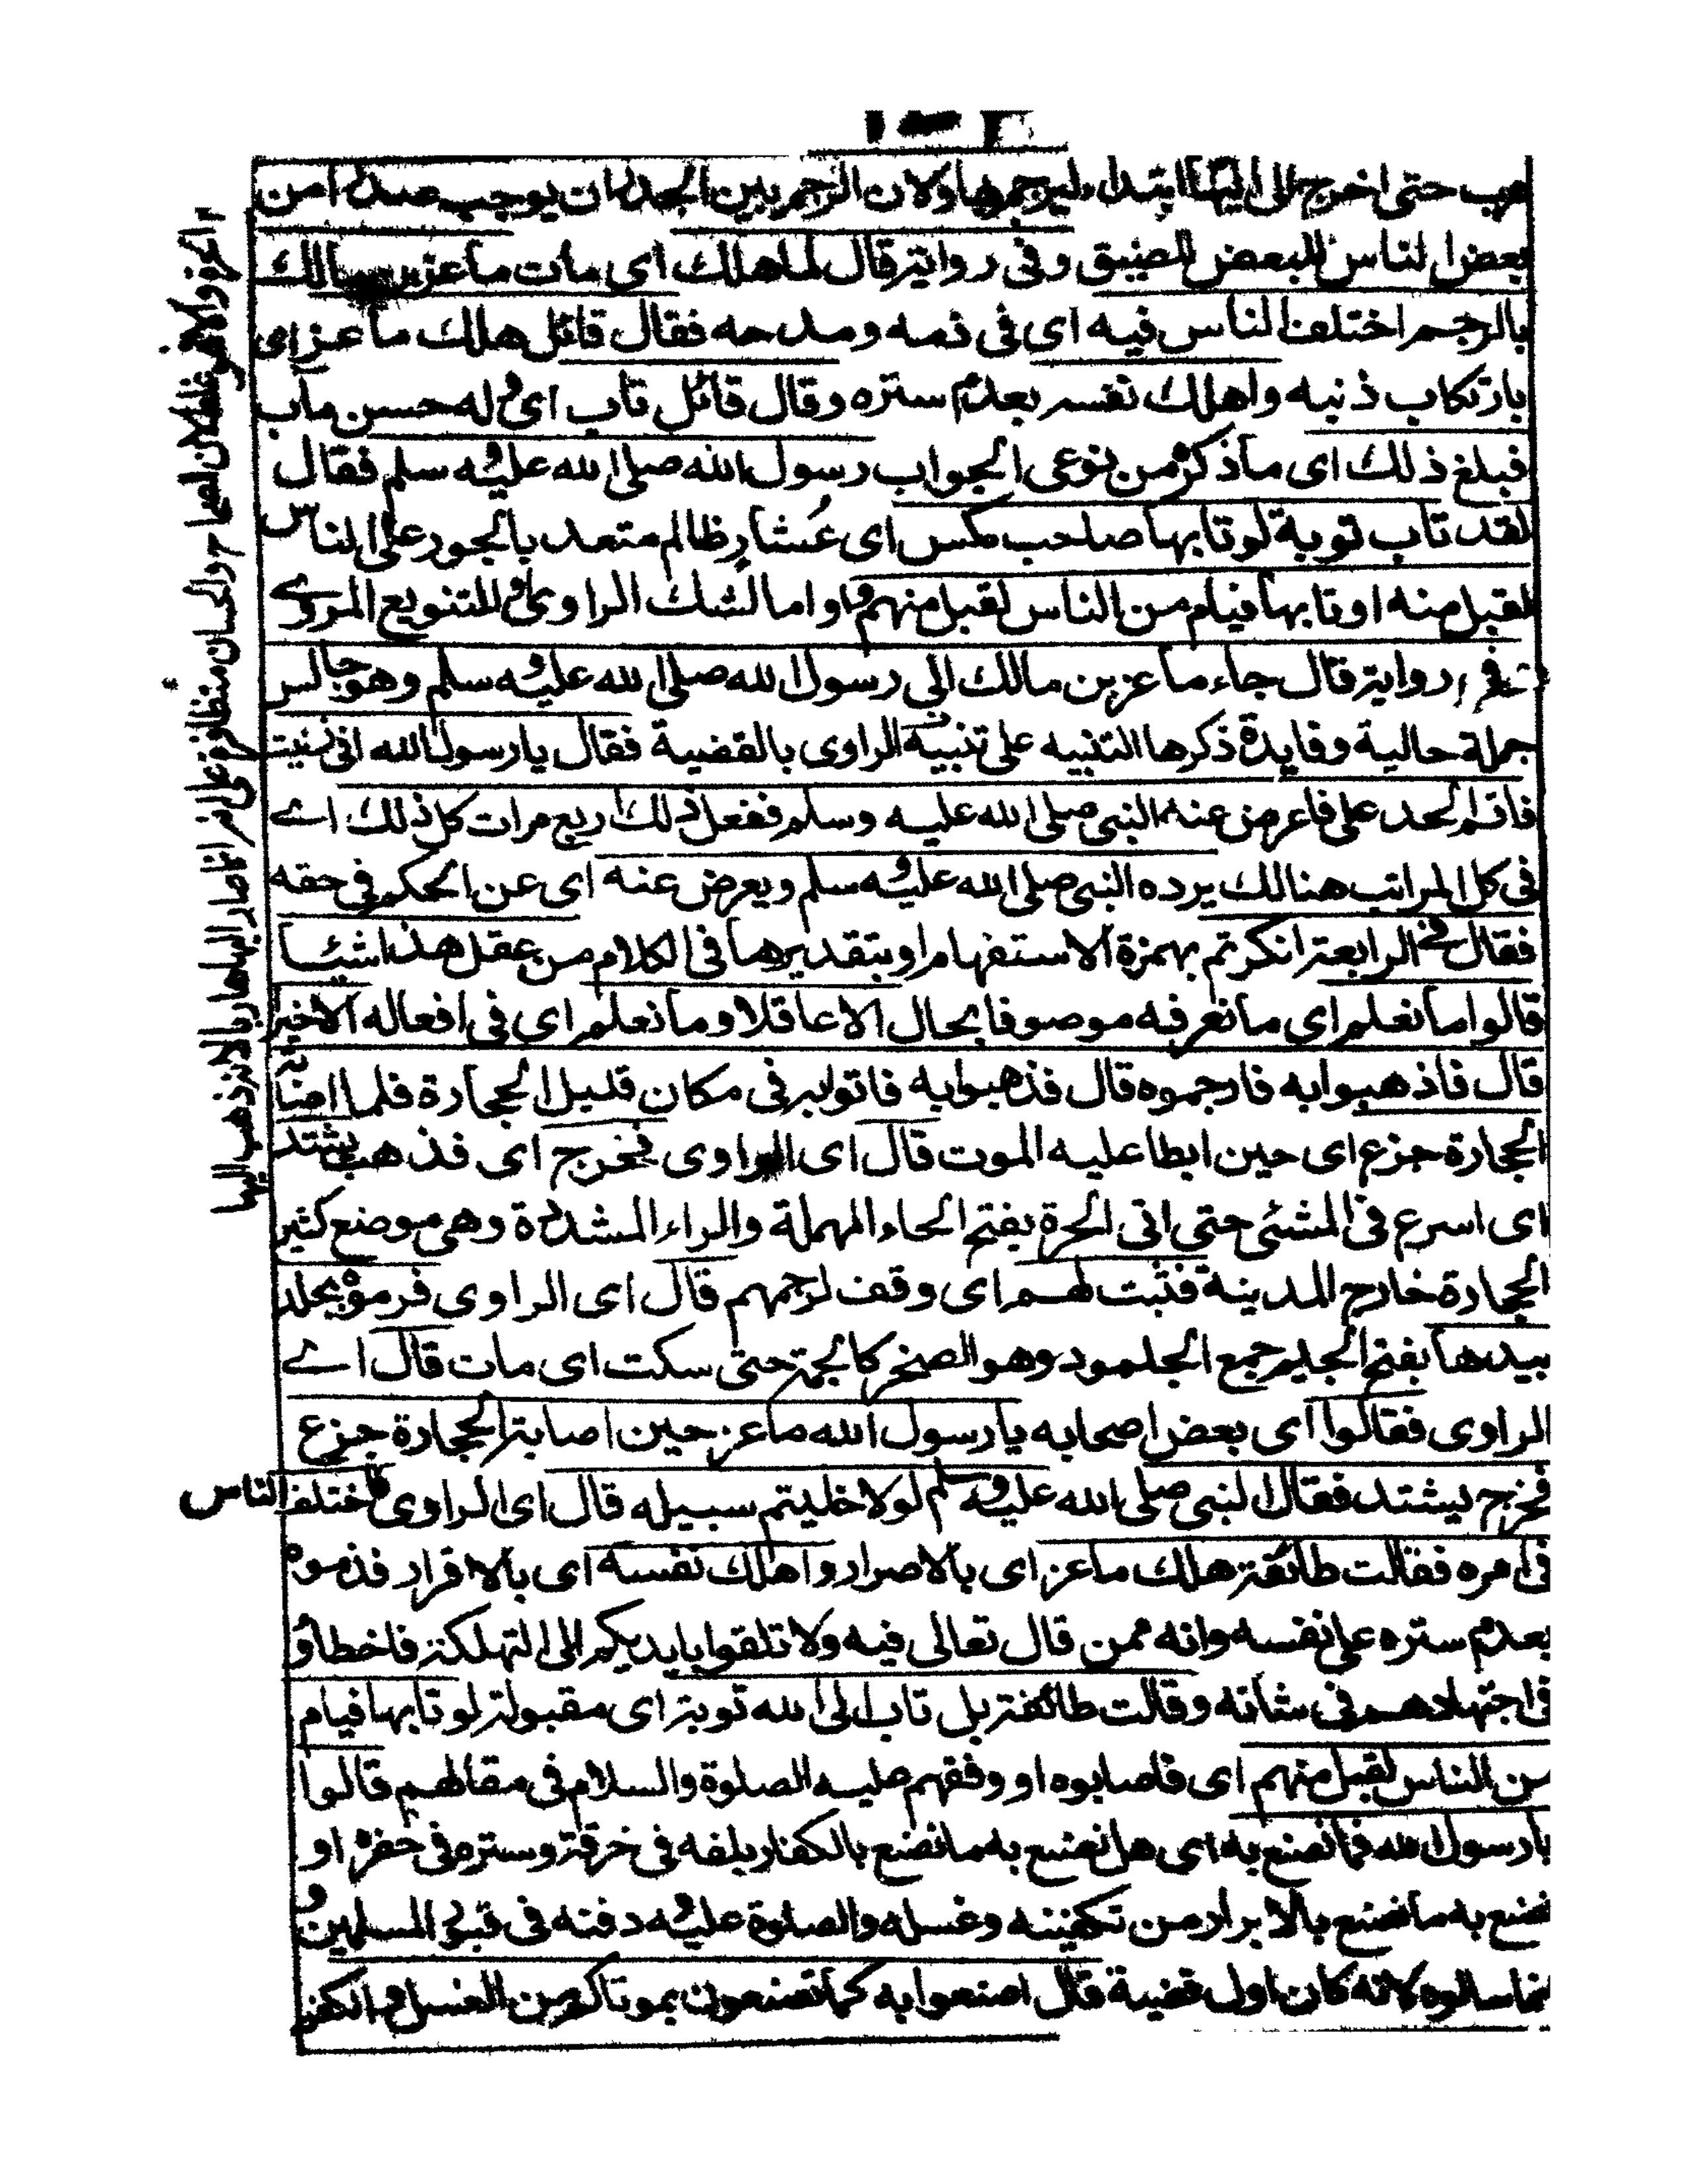 هرب حتى اخرج الى اليها ابتداء ليرجم بها ولان الرجم بين الجدران يوجب صدما من
بعض الناس للبعض للضيق وفى رواية قال لما هلك اى مات ماعز بن مالك
بالرجم اختلف الناس فيه اى فى ذمه ومدحه فقال قائل هلك ماعز اى
بارتكاب ذنبه واهلك نفسه بعدم ستره وقال قائل تاب اى وله حسن مآب
فبلغ ذلك اى ما ذكر من نوعى الجواب رسول الله صلى الله عليه وسلم فقال
لقد تاب توبة لو تابها صاحب مكس اى عُشار ظالم متعد بالجور على الناس
لقبل منه او تابها فيام من الناس لقبل منهم واو اما لشك الراوى او للتنويع المروے
وفى رواية قال جاء ماعز بن مالك الى رسول الله صلى الله عليه وسلم وهو جالس
جملة حالية وفايدة ذكرها التنبيه على تنبيه الراوى بالقضية فقال يا رسول الله انى زنيت
فاقم الحد على فاعرض عنه النبى صلى الله عليه وسلم ففعل ذلك اربع مرات كل ذلك اے
فى كل المراتب هنالك يرده النبى صلى الله عليه وسلم ويعرض عنه اى عن الحكم فى حقه
فقال فى الرابعة انكرتم بهمزة الاستفهام او بتقديرها فى الكلام من عقل هذا شيئا
قالوا ما نعلم اى ما نعرفه موصوفا بحال الا عاقلا وما نعلم اى فى افعاله الا خيرا
قال فاذهبوا به فارجموه قال فذهبوا به فاتوا به فى مكان قليل الحجارة فلما اصابته
الحجارة جزع اى حين ابطا عليه الموت قال اى الراوى فخرج اى فذهب يشتد
اى اسرع فى المشئى حتى اتى الحرة بفتح الحاء المهملة والراء المشددة وهى موضع كثير
الحجارة خارج المدينة فثبت لهم اى وقف لرجمهم قال اى الراوى فرموه بجلا
ميدها بفتح الجيم جمع الجلمود وهو الصخر كالجمة حتى سكت اى مات قال اے
الراوى فقالوا اى بعض اصحابه يا رسول الله ماعز حين اصابته الحجارة جزع
فخرج يشتد فقال النبى صلى الله عليه وسلم لولا خليتم سبيله قال اى الراوى فاختلف الناس
فى امره فقالت طائفة هلك ماعز اى بالاصرار واهلك نفسه اى بالاقرار فذموه
بعدم ستره على نفسه وانه ممن قال تعالى فيه ولا تلقوا بايديكم الى التهلكة فاخطاؤ
فى اجتهادهم فى شانه وقالت طائفة بل تاب الى الله توبة اى مقبولة لو تابها فيام
من الناس لقبل منهم اى فاصابوه او وفقهم عليه الصلوة والسلام فى مقالهم قالوا
يا رسول الله فما نصنع به اى هل نصنع به ما نصنع بالكفار بلفه فى خرقة وستره فى حفرة او
نصنع به ما نصنع بالابرار من تكفينه وغسله والصلوة عليه ودفنه فى قبور المسلمين و
انما سالوه لانه كان اول قضية قال اصنعوا به كما تصنعون بموتاكم من الغسل والكفن